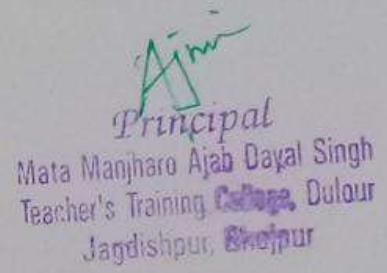 Principal
Mata Manjharo Ajab Dayal Singh
Teacher's Training College, Dulour
Jagdishpur, Bhojpur